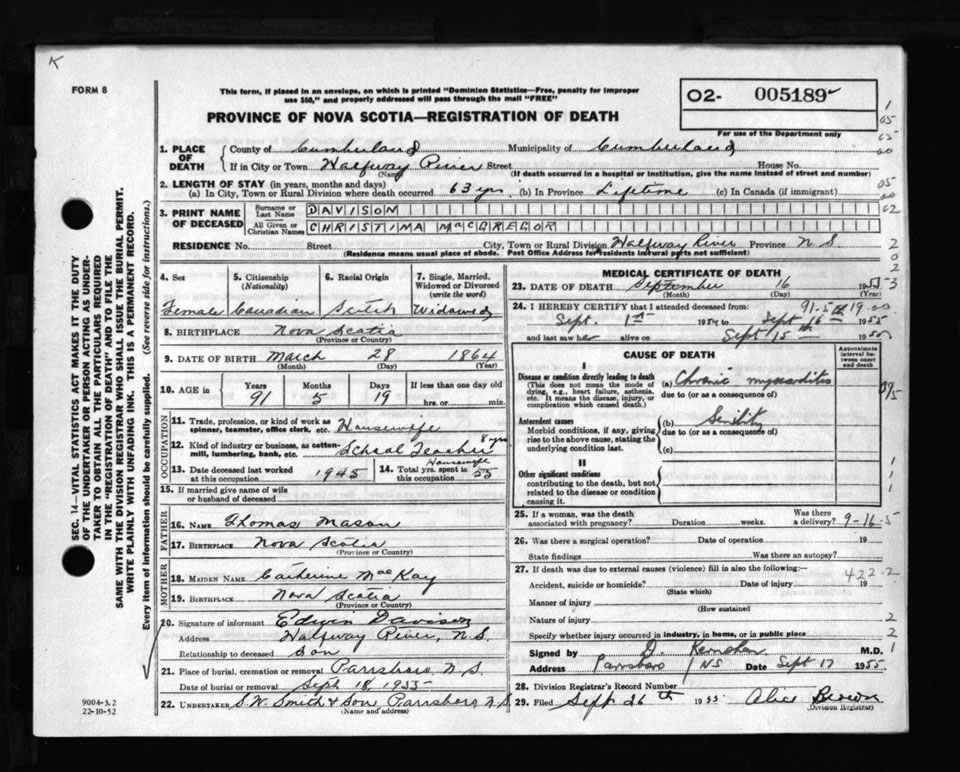 K
FORM 8
This form, if placed in an envelope, on which is printed "Dominion Statistics—Free, penalty for improper
use $50," and properly addressed will pass through the mail "FREE"
O2- 005189
For use of the Department only
PROVINCE OF NOVA SCOTIA—REGISTRATION OF DEATH
1. PLACE OF DEATH County of Cumberland Municipality of Cumberland
If in City or Town Halfway River Street House No.
(Name) (If death occurred in a hospital or institution, give the name instead of street and number)
2. LENGTH OF STAY (in years, months and days)
(a) In City, Town or Rural Division where death occurred 63 yrs. (b) In Province Lifetime (c) In Canada (if immigrant)
3. PRINT NAME OF DECEASED Surname or Last Name DAVISON
All Given or Christian Names CHRISTIMA MacGREGOR
RESIDENCE No. Street City, Town or Rural Division Halfway River Province N S.
(Residence means usual place of abode. Post Office Address for residents in rural parts not sufficient)
4. Sex 5. Citizenship (Nationality) 6. Racial Origin 7. Single, Married, Widowed or Divorced (write the word)
Female Canadian Scotch Widowed
8. BIRTHPLACE Nova Scotia
(Province or Country)
9. DATE OF BIRTH March 28 1864
(Month) (Day) (Year)
10. AGE in Years Months Days If less than one day old
91 5 19 hrs. or min.
OCCUPATION
11. Trade, profession, or kind of work as spinner, teamster, office clerk, etc. Housewife
12. Kind of industry or business, as cotten-mill, lumbering, bank, etc. School Teacher 8 yrs
13. Date deceased last worked at this occupation 1945 14. Total yrs. spent in this occupation Housewife 55
15. If married give name of wife or husband of deceased
FATHER
16. NAME Thomas Mason
17. BIRTHPLACE Nova Scotia
(Province or Country)
MOTHER
18. MAIDEN NAME Catherine MacKay
19. BIRTHPLACE Nova Scotia
(Province or Country)
20. Signature of informant Edwin Davison
Address Halfway River, N.S.
Relationship to deceased Son
21. Place of burial, cremation or removal Parrsboro N.S.
Date of burial or removal Sept 18, 1955
22. UNDERTAKER S.W. Smith & Son Parrsboro N.S.
(Name and address)
MEDICAL CERTIFICATE OF DEATH
23. DATE OF DEATH September 16 1955
(Month) (Day) (Year)
24. I HEREBY CERTIFY that I attended deceased from:
Sept. 1st 1954 to Sept 16th 1955
and last saw her alive on Sept 15th 1955
CAUSE OF DEATH
Approximate interval between onset and death
I
Disease or condition directly leading to death (a) Chronic myocarditis
(This does not mean the mode of dying, e.g., heart failure, asthenia, etc. It means the disease, injury, or complication which caused death.)
due to (or as a consequence of)
Antecedent causes (b) Senility
Morbid conditions, if any, giving rise to the above cause, stating the underlying condition last.
due to (or as a consequence of)
(c)
II
Other significant conditions
contributing to the death, but not related to the disease or condition causing it.
25. If a woman, was the death associated with pregnancy? Duration weeks. Was there a delivery? 9-16-5
26. Was there a surgical operation? Date of operation 19
State findings Was there an autopsy?
27. If death was due to external causes (violence) fill in also the following:—
Accident, suicide or homicide? Date of injury 19
(State which) 422.2
Manner of injury
(How sustained
Nature of injury
Specify whether injury occurred in industry, in home, or in public place
Signed by D. Kernohan M.D.
Address Parrsboro NS Date Sept 17 1955
28. Division Registrar's Record Number
29. Filed Sept 26th 1955 Alice Brown
(Division Registrar)
SEC. 14—VITAL STATISTICS ACT MAKES IT THE DUTY
OF THE UNDERTAKER OR PERSON ACTING AS UNDER-
TAKER TO OBTAIN ALL THE PARTICULARS REQUIRED
IN THE "REGISTRATION OF DEATH" AND TO FILE THE
SAME WITH THE DIVISION REGISTRAR WHO SHALL ISSUE THE BURIAL PERMIT.
WRITE PLAINLY WITH UNFADING INK. THIS IS A PERMANENT RECORD.
Every item of information should be carefully supplied. (See reverse side for instructions.)
9004-3.2
22-10-52